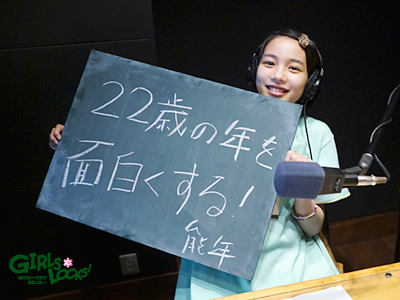 22歳の年を
面白くする!
能年
GIRLS
LOCKS!